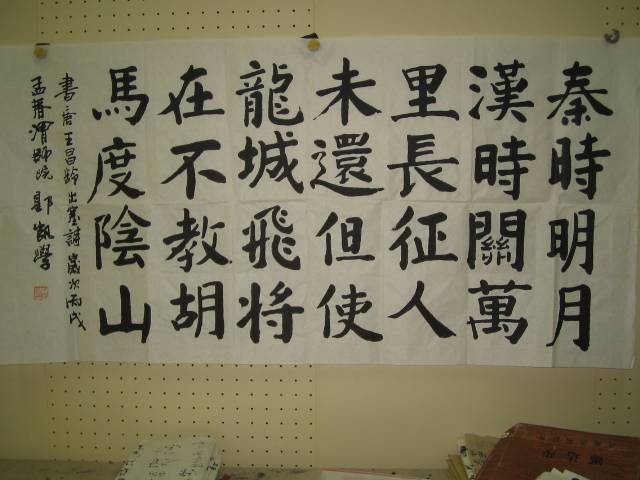 秦時明月
漢時關萬
里長征人
未還但使
龍城飛将
在不教胡
馬度陰山
書唐王昌龄出塞詩歲次丙戌
孟春渭師院